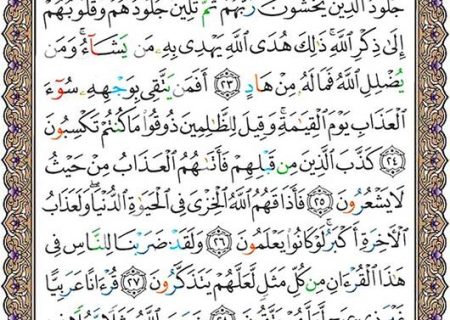 جُلُودُ ٱلَّذِينَ يَخْشَوْنَ رَبَّهُمْ ثُمَّ تَلِينُ جُلُودُهُمْ وَقُلُوبُهُمْ
إِلَىٰ ذِكْرِ ٱللَّهِ ۚ ذَٰلِكَ هُدَى ٱللَّهِ يَهْدِى بِهِۦ مَن يَشَآءُ ۚ وَمَن
يُضْلِلِ ٱللَّهُ فَمَا لَهُۥ مِنْ هَادٍ ٢٣ أَفَمَن يَتَّقِى بِوَجْهِهِۦ سُوٓءَ
ٱلْعَذَابِ يَوْمَ ٱلْقِيَٰمَةِ ۚ وَقِيلَ لِلظَّٰلِمِينَ ذُوقُوا۟ مَا كُنتُمْ تَكْسِبُونَ
٢٤ كَذَّبَ ٱلَّذِينَ مِن قَبْلِهِمْ فَأَتَىٰهُمُ ٱلْعَذَابُ مِنْ حَيْثُ
لَا يَشْعُرُونَ ٢٥ فَأَذَاقَهُمُ ٱللَّهُ ٱلْخِزْىَ فِى ٱلْحَيَوٰةِ ٱلدُّنْيَا ۖ وَلَعَذَابُ
ٱلْءَاخِرَةِ أَكْبَرُ ۚ لَوْ كَانُوا۟ يَعْلَمُونَ ٢٦ وَلَقَدْ ضَرَبْنَا لِلنَّاسِ فِى
هَٰذَا ٱلْقُرْءَانِ مِن كُلِّ مَثَلٍ لَّعَلَّهُمْ يَتَذَكَّرُونَ ٢٧ قُرْءَانًا عَرَبِيًّا